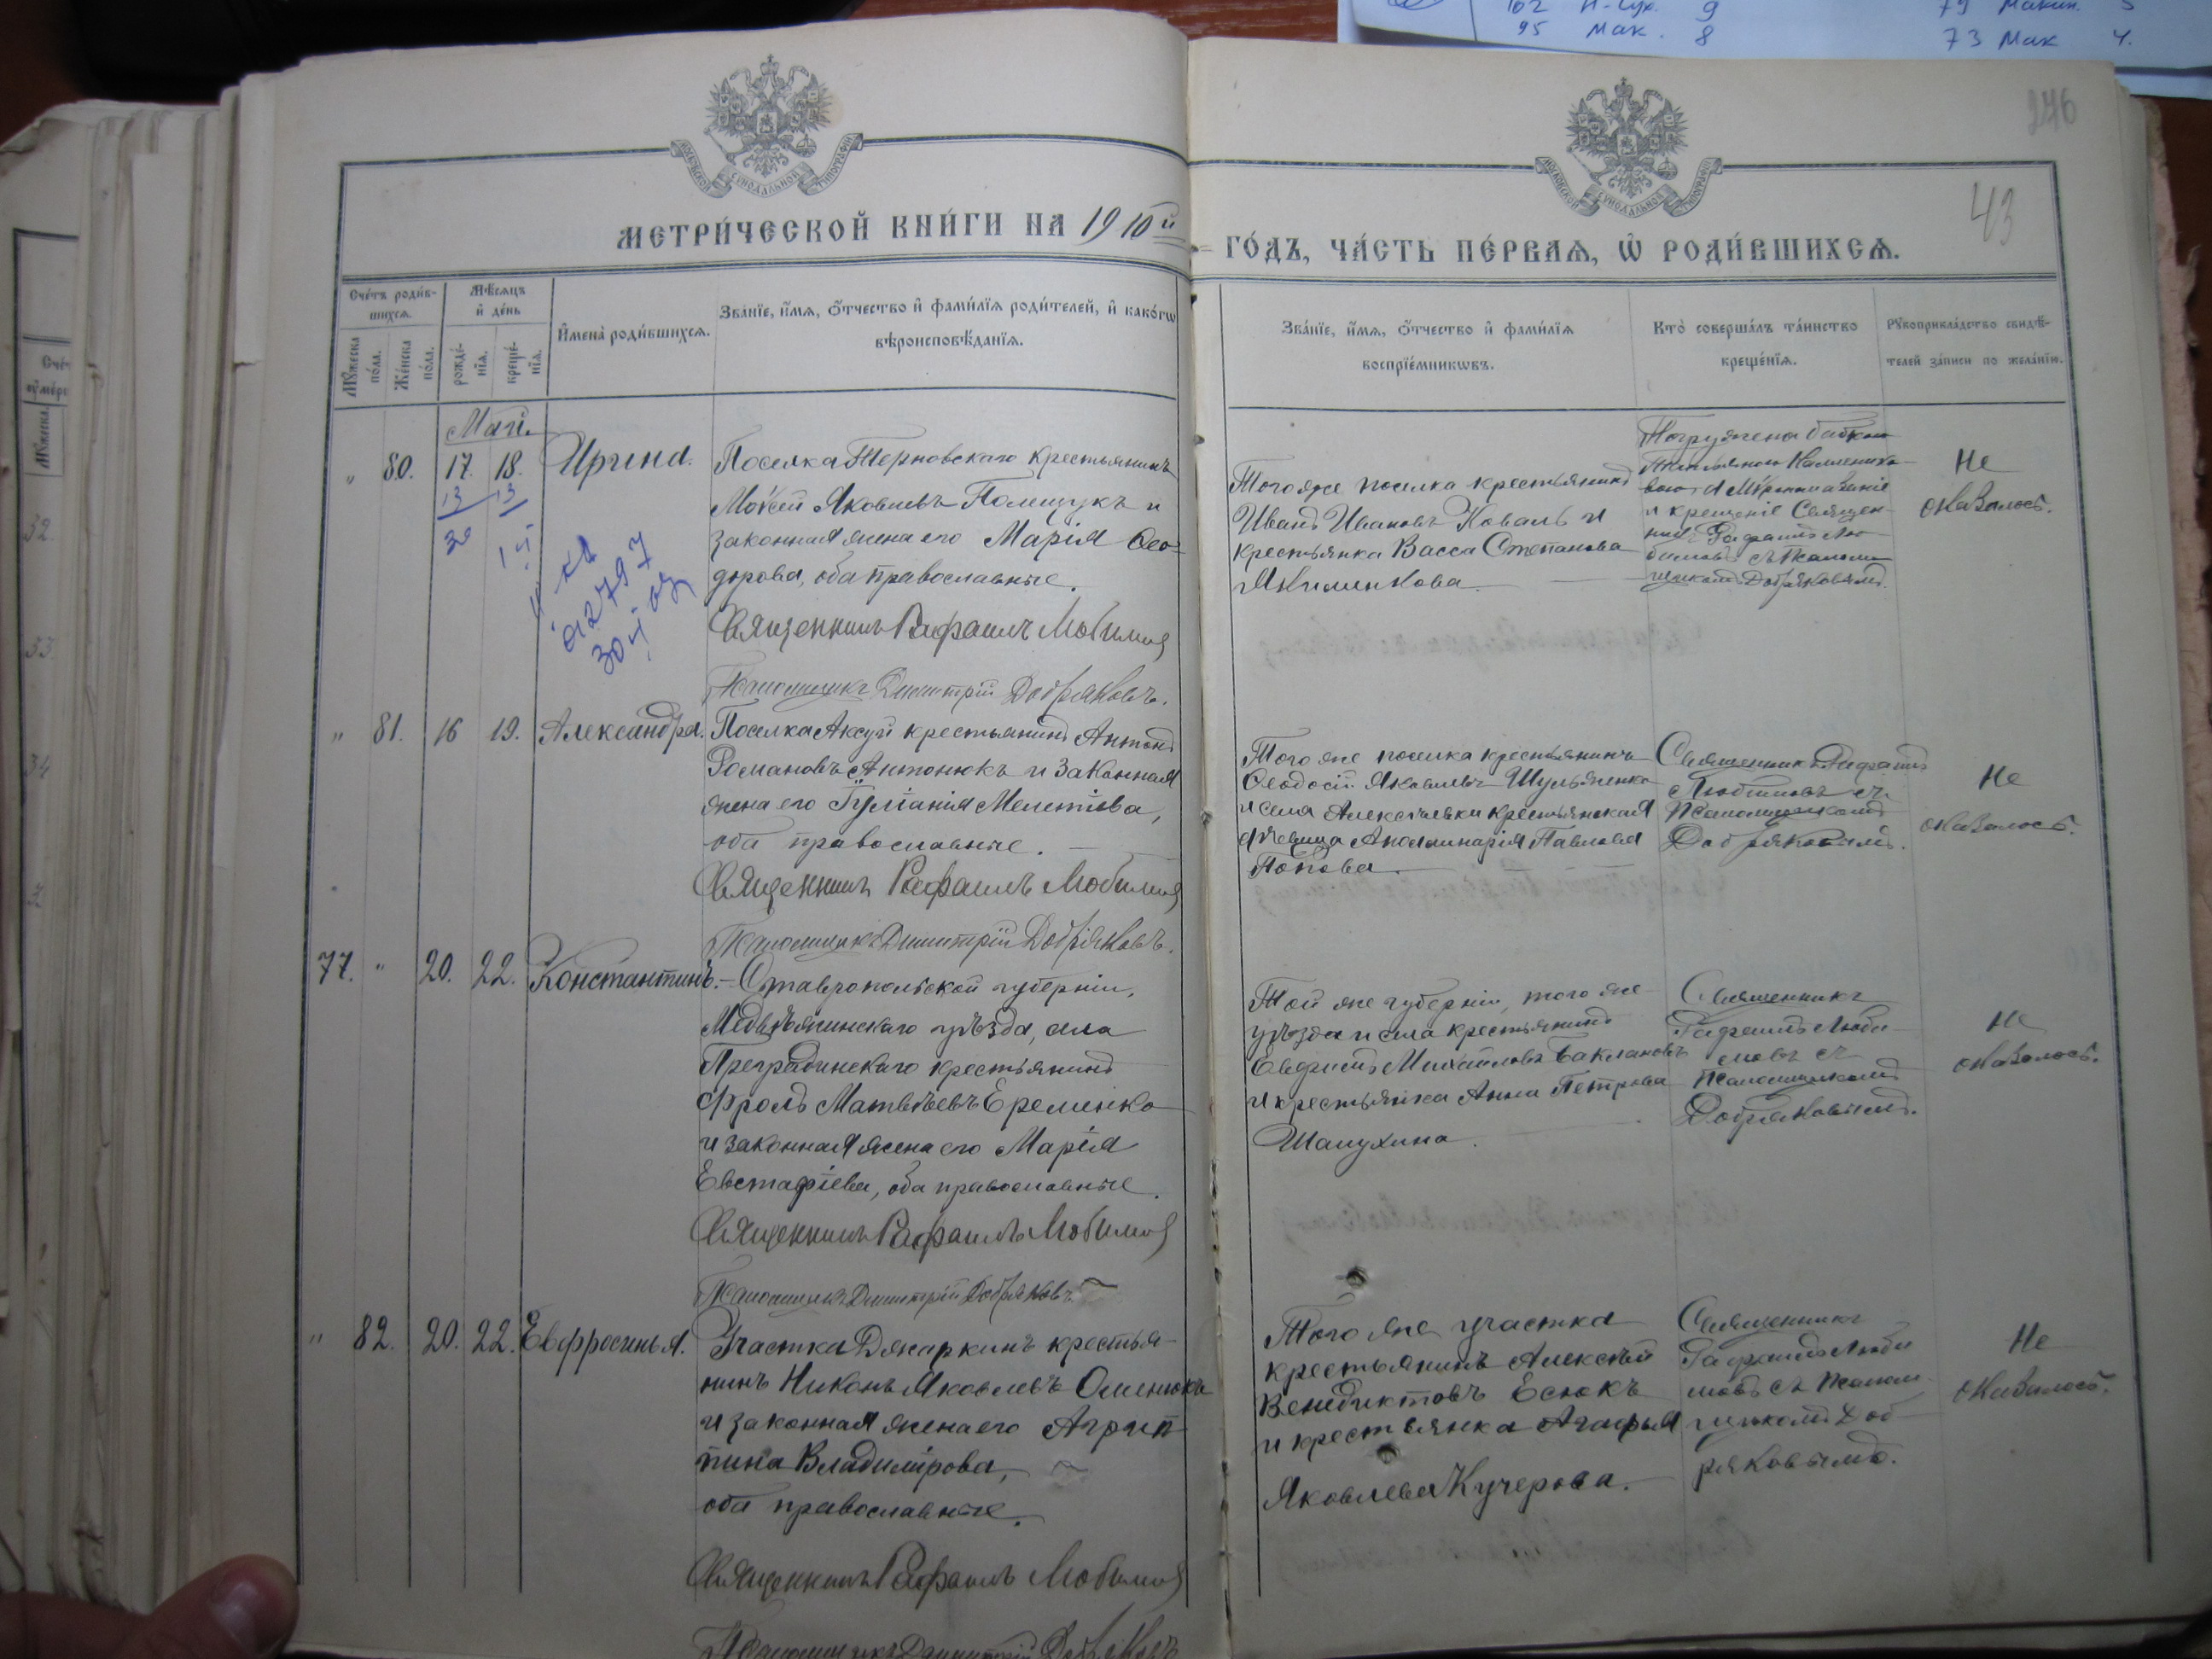 102 9
95 Мак. 8
73 Мак 4.
246
43
МОСКОВСКОЙ СѴНОДАЛЬНОЙ ТИПОГРАФІИ
МОСКОВСКОЙ СѴНОДАЛЬНОЙ ТИПОГРАФІИ
МЕТРИ́ЧЕСКОЙ КНИ́ГИ НА 1910й
ГО́ДЪ, ЧА́СТЬ ПЕ́РВАѦ, Ѿ РОДИ́ВШИХСѦ.
Сче́тъ роди́в-
шихсѧ.
Мꙋжеска по́ла.
Же́нска по́ла.
Мѣ́сѧцъ
и҆ де́нь
рожде́-
нїѧ.
креще́-
нїѧ.
И҆мена̀ роди́вшихсѧ.
Зва́нїе, и҆́мѧ, ѻ҆́тчество и҆ фами́лїѧ роди́телей, и҆ како́гѡ
вѣроисповѣ́данїѧ.
Зва́нїе, и҆́мѧ, ѻ҆́тчество и҆ фами́лїѧ
воспрїе́мникѡвъ.
Кто̀ соверша́лъ та́инство
креще́нїѧ.
Рꙋкоприкла́дство свидѣ́-
телей за́писи по жела́нїю.
Май.
" 80. 17. 18. Ирина.
13 13
30
02797
Поселка Терновскаго крестьянинъ
Моѵсей Яковлевъ Полищукъ и
законная жена его Марія Ѳео-
дорова, оба православные.
Священникъ Рафаилъ Любимовъ
Псаломщикъ Димитрій Добряковъ.
Того же поселка крестьянинъ
Иванъ Ивановъ Коваль и
крестьянка Васса Степанова
Якименкова.
Погружена бабкою
и Мѵропомазаніе
и крещеніе Священ-
никъ Рафаилъ Лю-
бимовъ съ Псалом-
щикомъ Добряковымъ.
Не
оказалось.
" 81. 16 19. Александра.
Поселка Аксуй крестьянинъ Антонъ
Романовъ Антонюкъ и законная
жена его Іуліанія Мелетіева,
оба православные.
Священникъ Рафаилъ Любимовъ
Псаломщикъ Димитрій Добряковъ.
Того же поселка крестьянинъ
Ѳеодосій Яковлевъ Шульженко
и села Алексѣевки крестьянская
дѣвица Аполлинарія Павлова
Попова.
Священникъ Рафаилъ
Любимовъ съ
Псаломщикомъ
Добряковымъ.
Не
оказалось.
77. " 20. 22. Константинъ.
Ставропольской губерніи,
Медвѣжинскаго уѣзда, села
Преградинскаго крестьянинъ
Фролъ Матвѣевъ Еременко
и законная жена его Марія
Евстафіева, оба православные.
Священникъ Рафаилъ Любимовъ
Псаломщикъ Димитрій Добряковъ
Той же губерніи, того же
уѣзда и села крестьянинъ
Евфимъ Михайловъ Баклановъ
и крестьянка Анна Петрова
Шапухина.
Священникъ
Рафаилъ Люби-
мовъ съ
Псаломщикомъ
Добряковымъ.
Не
оказалось.
" 82. 20. 22. Евфросинья.
Участка Джаркинъ крестья-
нинъ Никонъ Яковлевъ Оменюкъ
и законная жена его Агрип-
пина Владимірова,
оба православные.
Священникъ Рафаилъ Любимовъ
Псаломщикъ Димитрій Добряковъ
Того же участка
крестьянинъ Алексѣй
Венедиктовъ Есюкъ
и крестьянка Агафья
Яковлева Кучерова.
Священникъ
Рафаилъ Люби-
мовъ съ Псалом-
щикомъ Доб-
ряковымъ.
Не
оказалось.